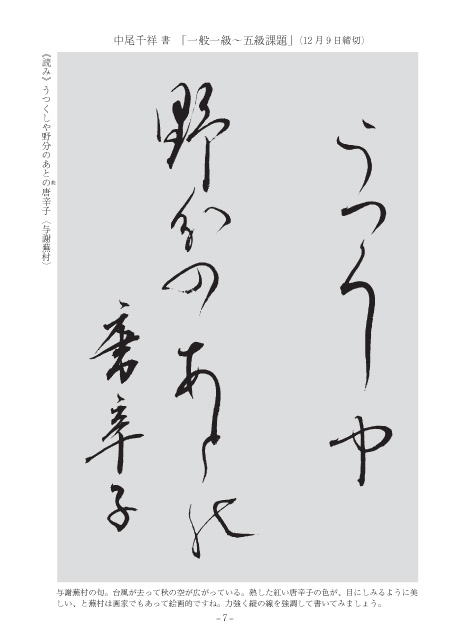 中尾千祥 書 「一般一級～五級課題」(12月9日締切)
うつくしや
野分のあと能
唐辛子
《読み》うつくしや野分のあとの能唐辛子〈与謝蕪村〉
与謝蕪村の句。台風が去って秋の空が広がっている。熟した紅い唐辛子の色が、目にしみるように美
しい、と蕪村は画家でもあって絵画的ですね。力強く縦の線を強調して書いてみましょう。
－7－